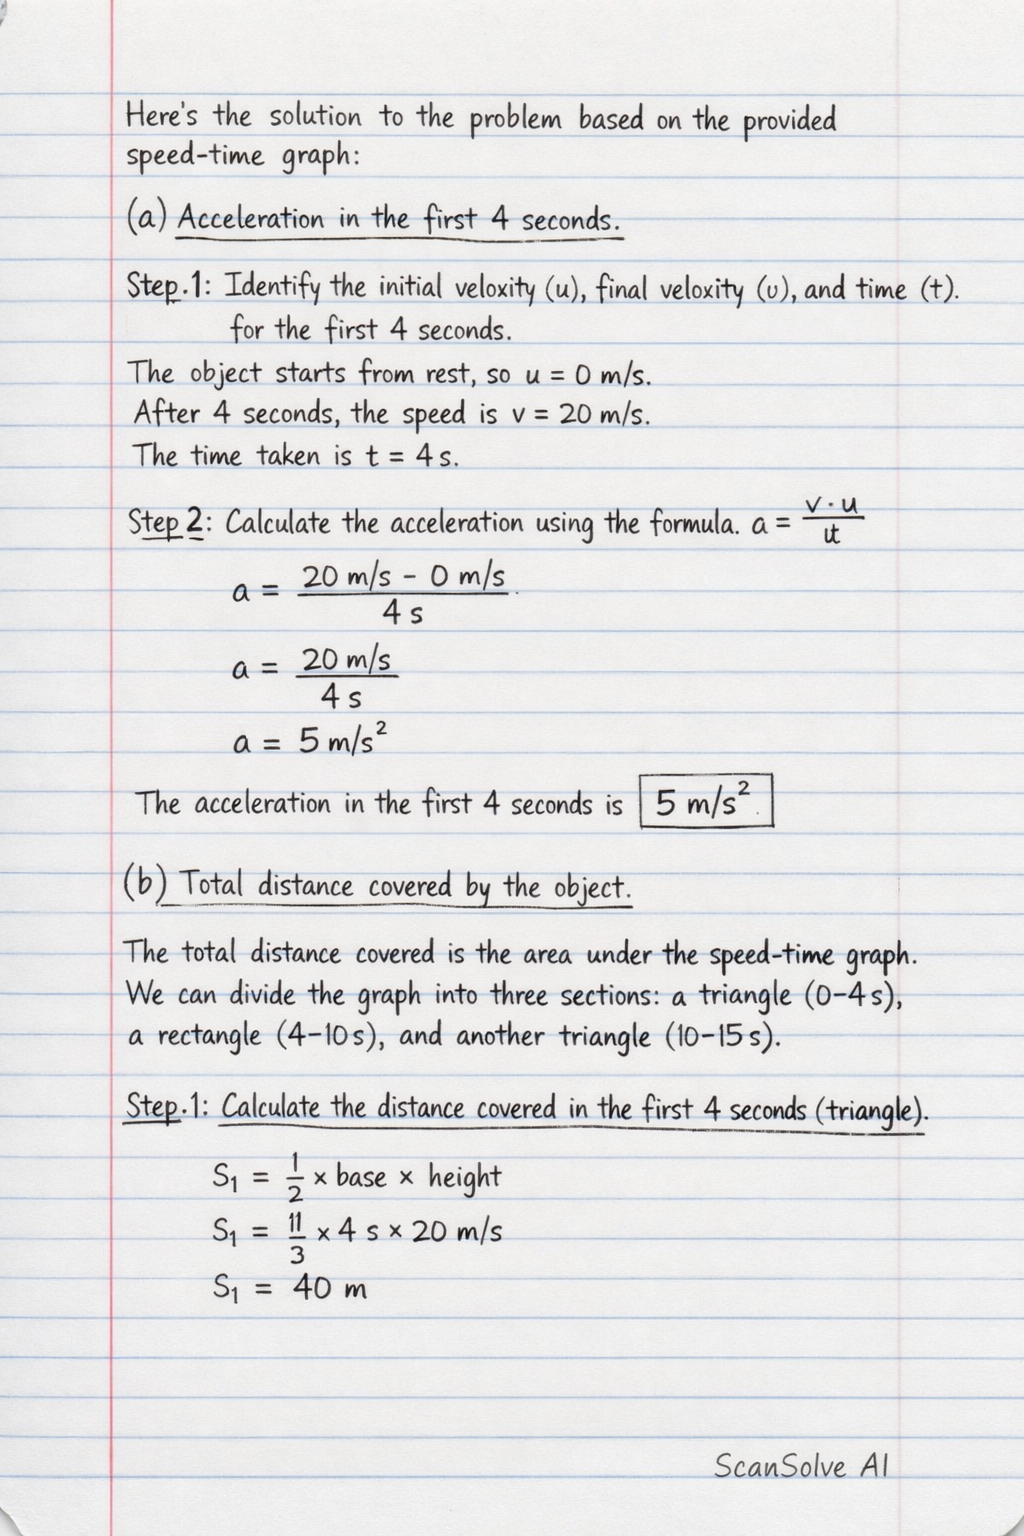 Here's the solution to the problem based on the provided
speed-time graph:
(a) Acceleration in the first 4 seconds.
Step.1: Identify the initial veloxity (u), final veloxity (υ), and time (t).
for the first 4 seconds.
The object starts from rest, so u = 0 m/s.
After 4 seconds, the speed is v = 20 m/s.
The time taken is t = 4 s.
Step 2: Calculate the acceleration using the formula. a = v · u / ut
a = 20 m/s - 0 m/s / 4 s
a = 20 m/s / 4 s
a = 5 m/s²
The acceleration in the first 4 seconds is 5 m/s².
(b) Total distance covered by the object.
The total distance covered is the area under the speed-time graph.
We can divide the graph into three sections: a triangle (0-4 s),
a rectangle (4-10 s), and another triangle (10-15 s).
Step.1: Calculate the distance covered in the first 4 seconds (triangle).
S₁ = 1/2 × base × height
S₁ = 11/3 × 4 s × 20 m/s
S₁ = 40 m
ScanSolve AI